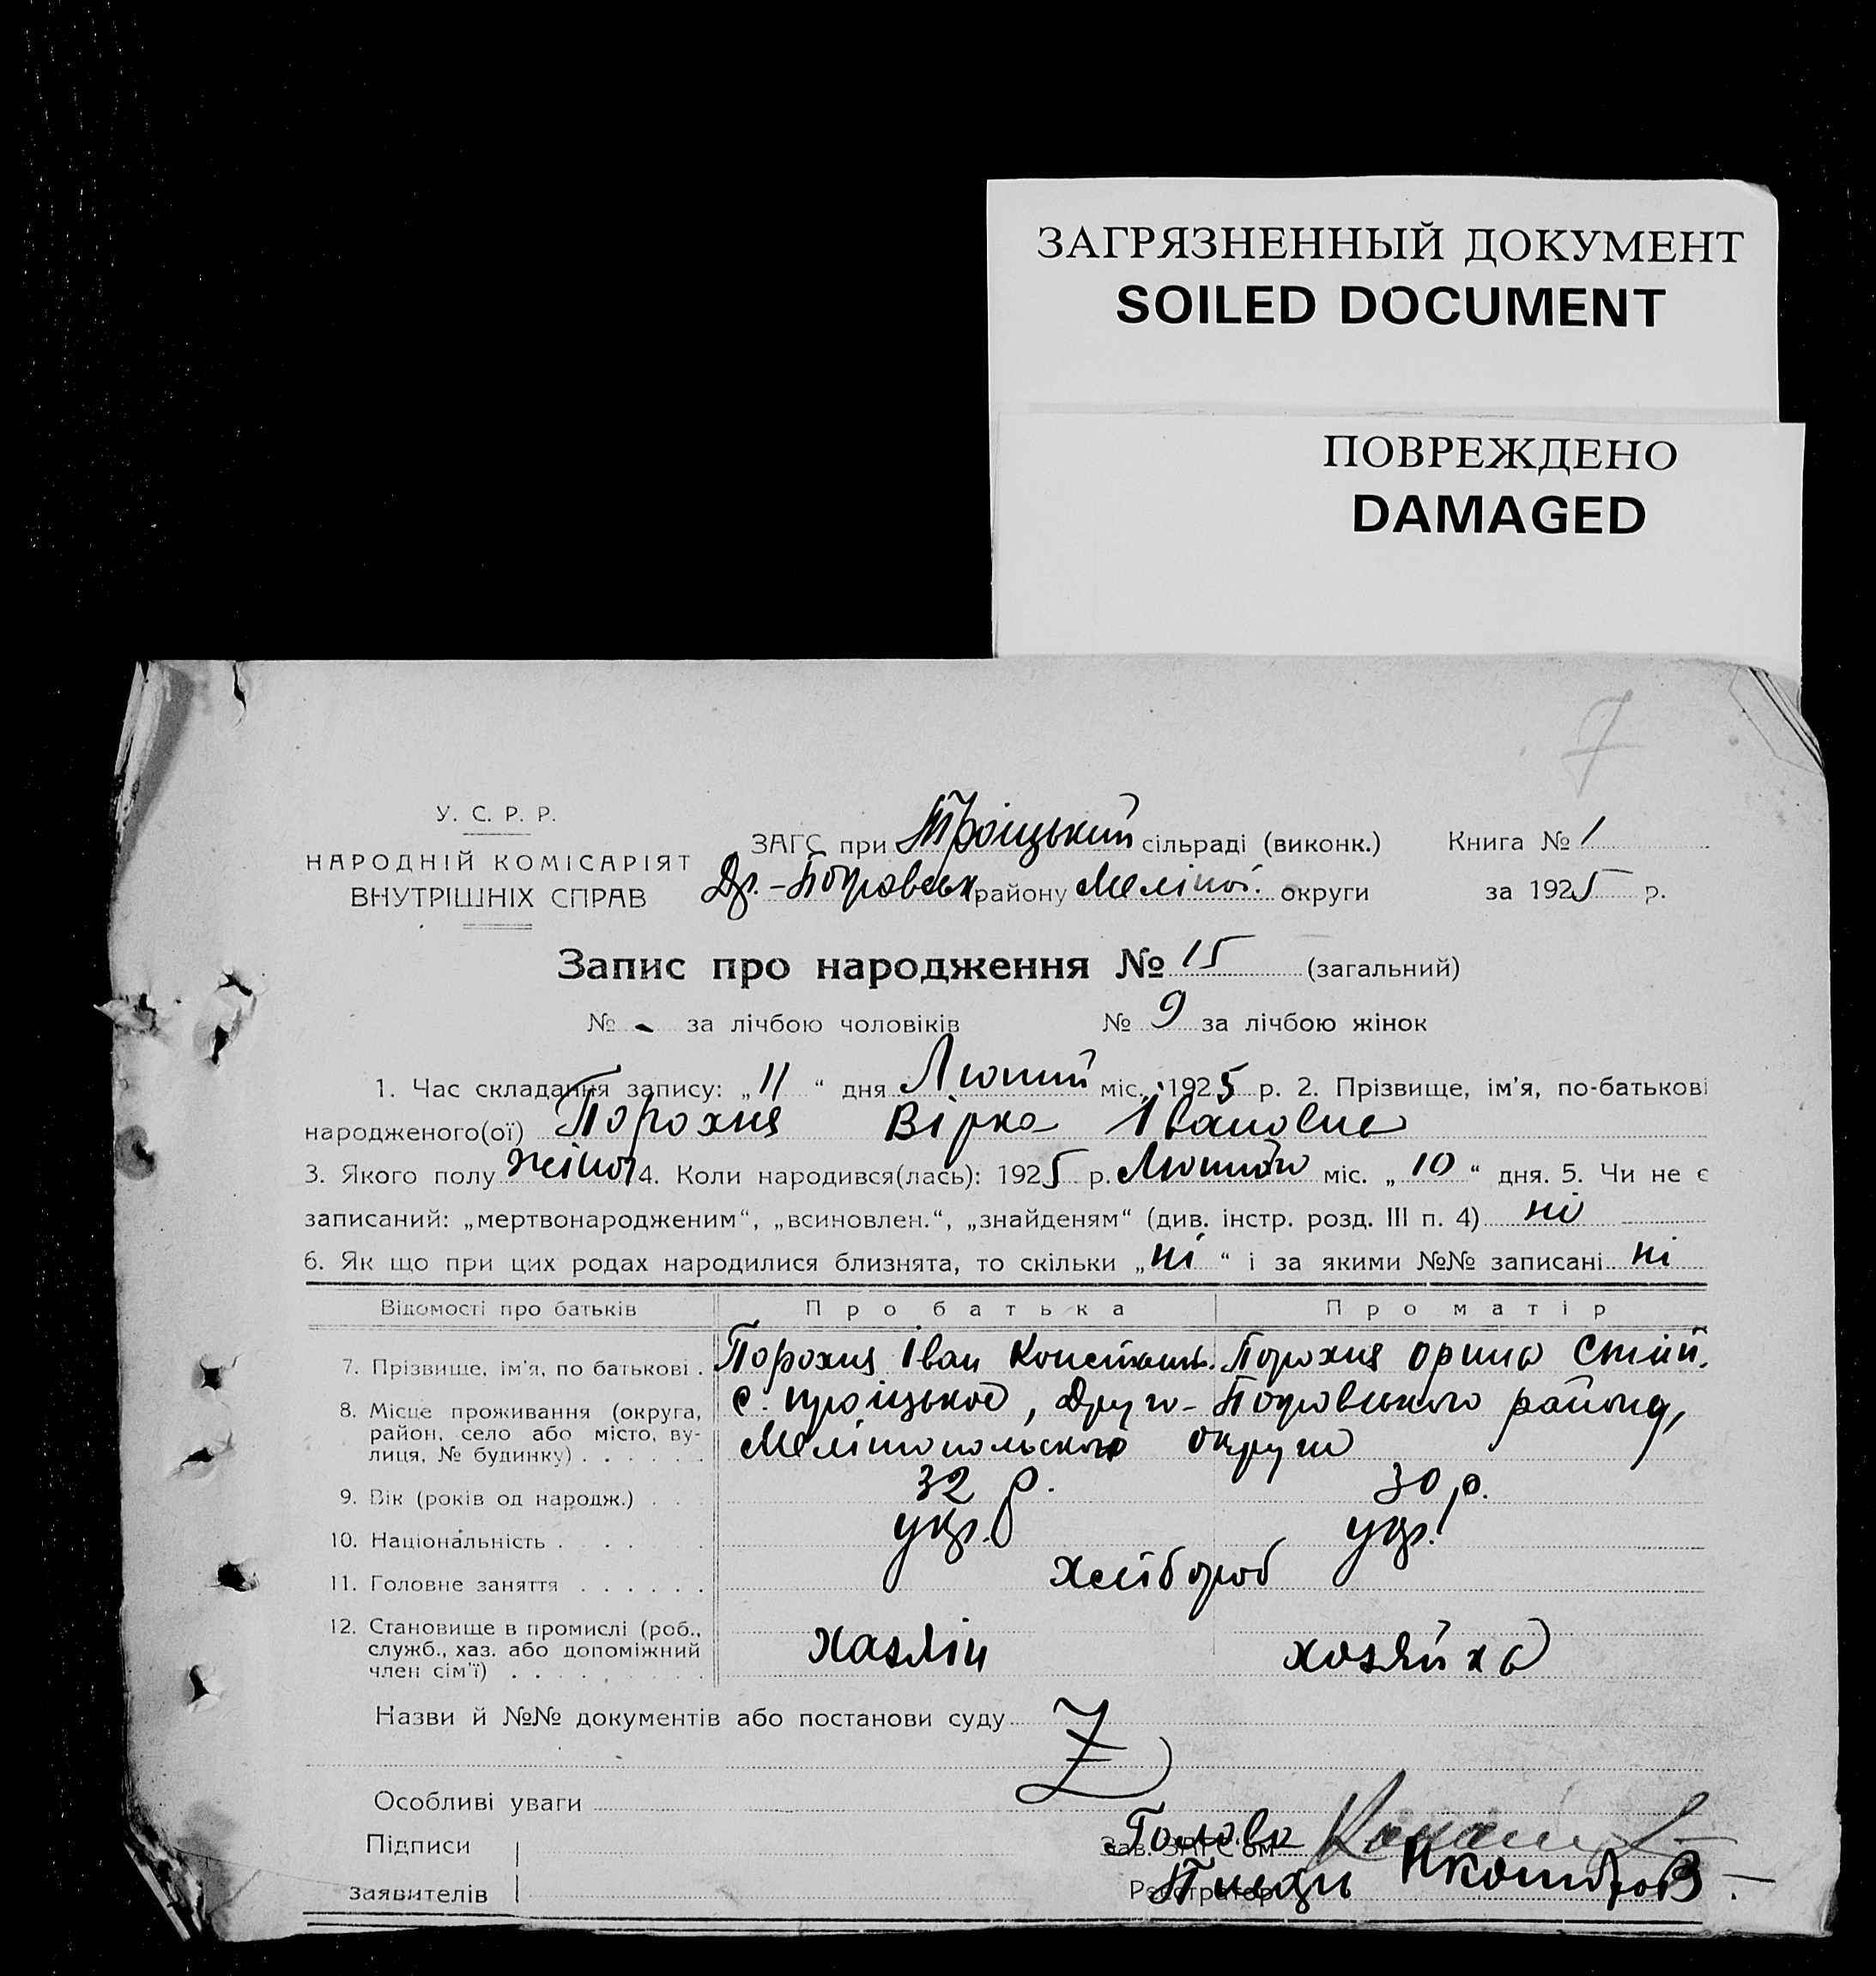 ЗАГРЯЗНЕННЫЙ ДОКУМЕНТ
SOILED DOCUMENT
ПОВРЕЖДЕНО
DAMAGED
7
У. С. Р. Р.
НАРОДНІЙ КОМІСАРІЯТ
ВНУТРІШНІХ СПРАВ
ЗАГС при Троіцький сільраді (виконк.) Книга № 1
Др.-Покровськ району Меліт. округи за 1925 р.
Запис про народження № 15 (загальний)
№ - за лічбою чоловіків № 9 за лічбою жінок
1. Час складання запису: „11“ дня Лютий міс. 1925 р. 2. Прізвище, ім'я, по-батькові
народженого(ої) Порохня Вірка Івановна
3. Якого полу жіноч 4. Коли народився(лась): 1925 р. Лютого міс. „10“ дня. 5. Чи не є
записаний: „мертвонародженим“, „всиновлен.“, „знайденям“ (див. інстр. розд. III п. 4) ні
6. Як що при цих родах народилися близнята, то скільки „ні“ і за якими №№ записані ні
Відомості про батьків Про батька Про матір
7. Прізвище, ім'я, по батькові . Порохня Іван Констант. Порохня Орина
8. Місце проживання (округа, с. Троіцькое, Друго-Покровського району,
район, село або місто, ву-
лиця, № будинку) . . . . . . Мелітопольского округи
9. Вік (років од народж.) . . . 32 р. 30 р.
10. Національність . . . . укр. укр.
11. Головне заняття . . . . . . хлібороб
12. Становище в промислі (роб.,
служб., хаз. або допоміжний хазяін хозяйка
член сім'ї) . . . . . . .
Назви й №№ документів або постанови суду Z
Особливі уваги
Підписи Зав. ЗАГС'ом Голова
заявителів Реєстратор